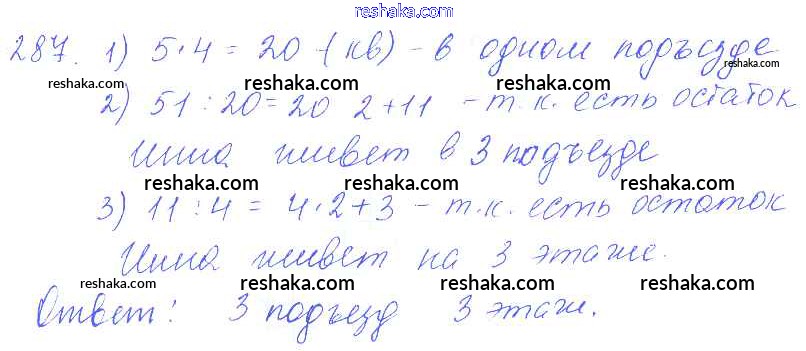 reshaka.com
287. 1) 5·4 = 20 (кв) - в одном подъезде
reshaka.com reshaka.com reshaka.com
2) 51 : 20 = 20 2 + 11 - т.к. есть остаток
Инна живет в 3 подъезде
reshaka.com reshaka.com reshaka.com
3) 11 : 4 = 4·2 + 3 - т.к. есть остаток
Инна живет на 3 этаже.
reshaka.com reshaka.com reshaka.com
Ответ: 3 подъезд 3 этаж.
reshaka.com